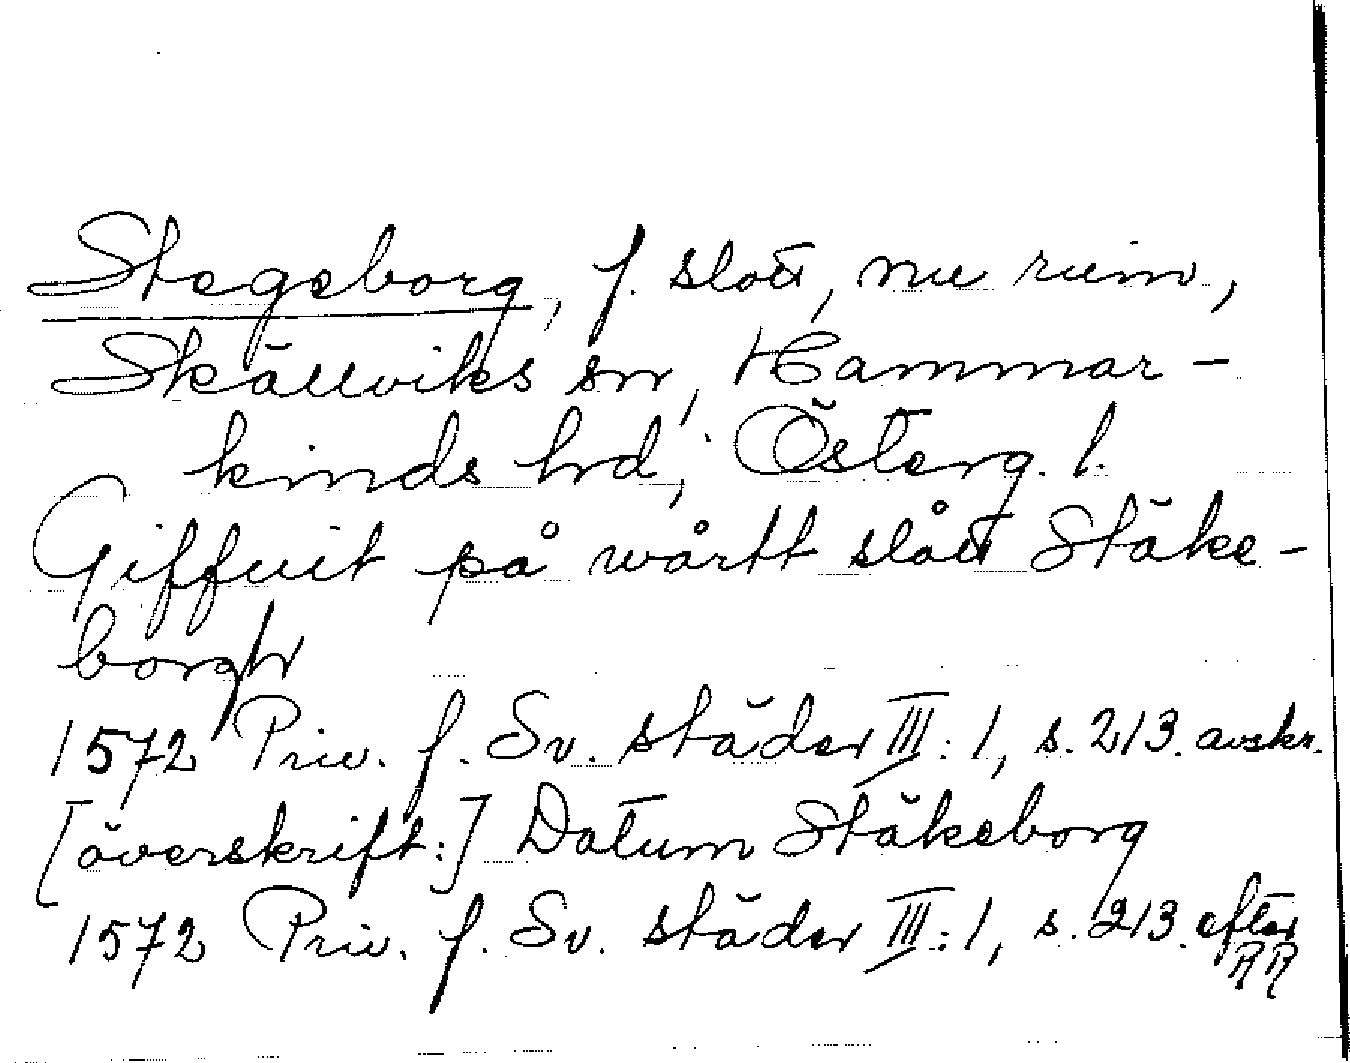 Stegeborg, f. slott, nu ruin,
Skällviks sn, Hammar-
kinds hd, Österg. l.
Giffuit på wårtt slått Stäke-
borgh
1572 Priv. f. Sv. städer III:1, s. 213. avskr.
[överskrift:] Datum Stäkeborg
1572 Priv. f. Sv. städer III:1, s. 213. efter
RR